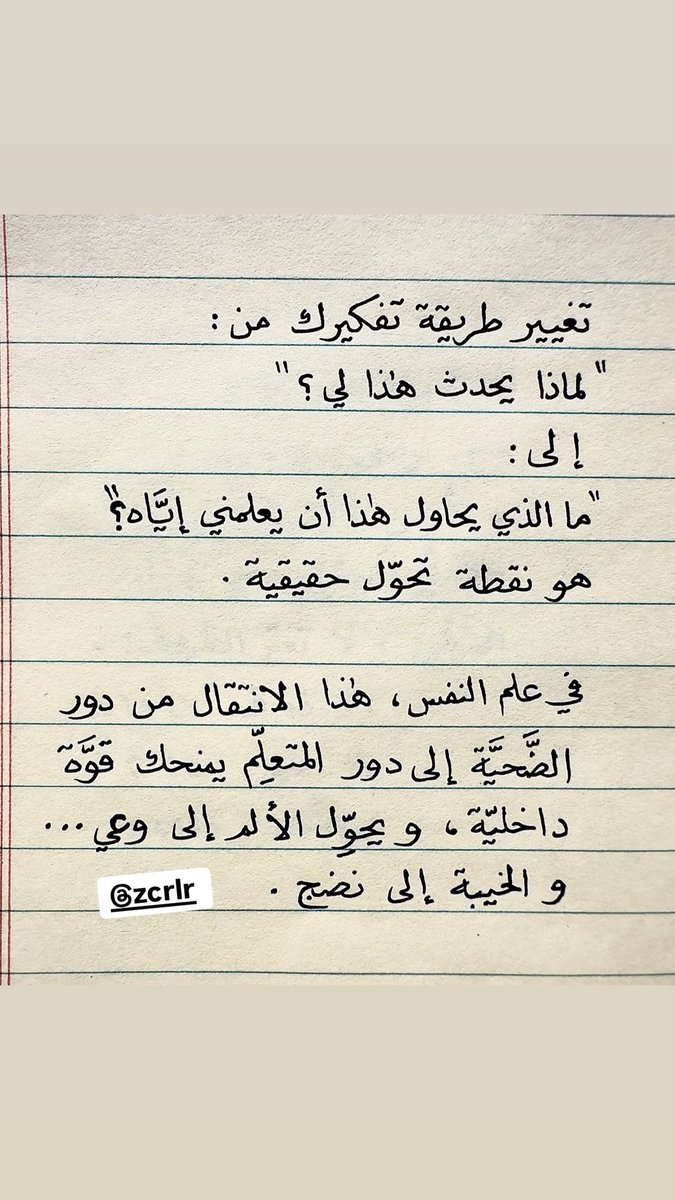 تغيير طريقة تفكيرك من :
"لماذا يحدث هٰذا لي ؟"
إلى :
"ما الذي يحاول هٰذا أن يعلمني إيَّاه؟"
هو نقطة تحوّل حقيقية .
في علم النفس، هٰذا الانتقال من دور
الضَّحيَّة إلى دور المتعلِّم يمنحك قوَّة
داخليّة ، و يحوِّل الألم إلى وعي ...
و الخيبة إلى نضج .
@zcrlr